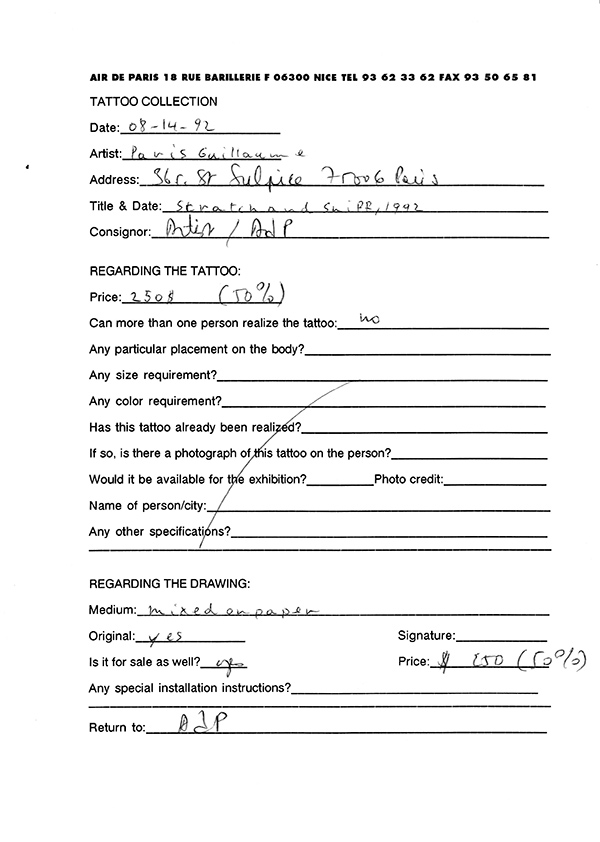 AIR DE PARIS 18 RUE BARILLERIE F 06300 NICE TEL 93 62 33 62 FAX 93 50 65 81
TATTOO COLLECTION
Date: 08-14-92
Artist: Paris Guillaume
Address: 36 r. St Sulpice 75006 Paris
Title & Date: Stratch and Snipe, 1992
Consignor: Artist / AdP
REGARDING THE TATTOO:
Price: 250$ (50%)
Can more than one person realize the tattoo: no
Any particular placement on the body?
Any size requirement?
Any color requirement?
Has this tattoo already been realized?
If so, is there a photograph of this tattoo on the person?
Would it be available for the exhibition? Photo credit:
Name of person/city:
Any other specifications?
REGARDING THE DRAWING:
Medium: mixed on paper
Original: yes Signature:
Is it for sale as well? yes Price: $ 250 (50%)
Any special installation instructions?
Return to: AdP